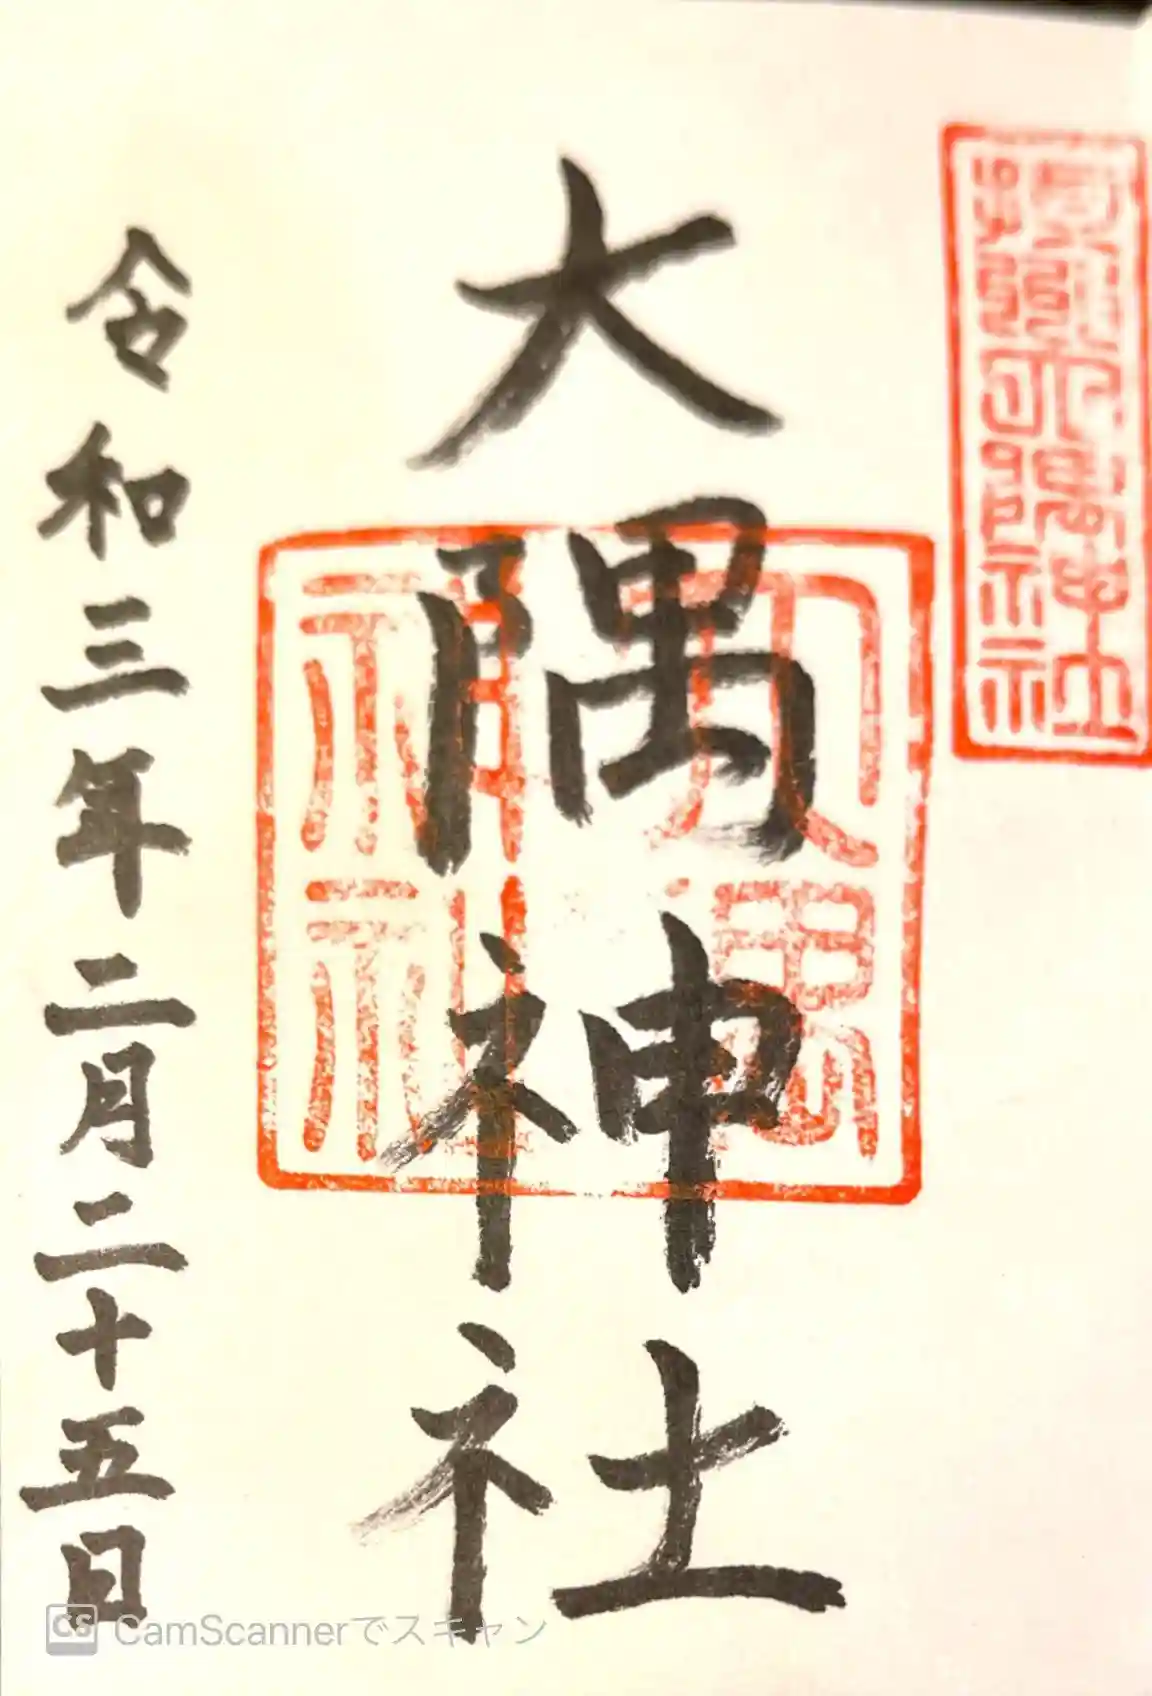 大隅神社
大禺
神社
令和三年二月二十五日
CS CamScannerでスキャン